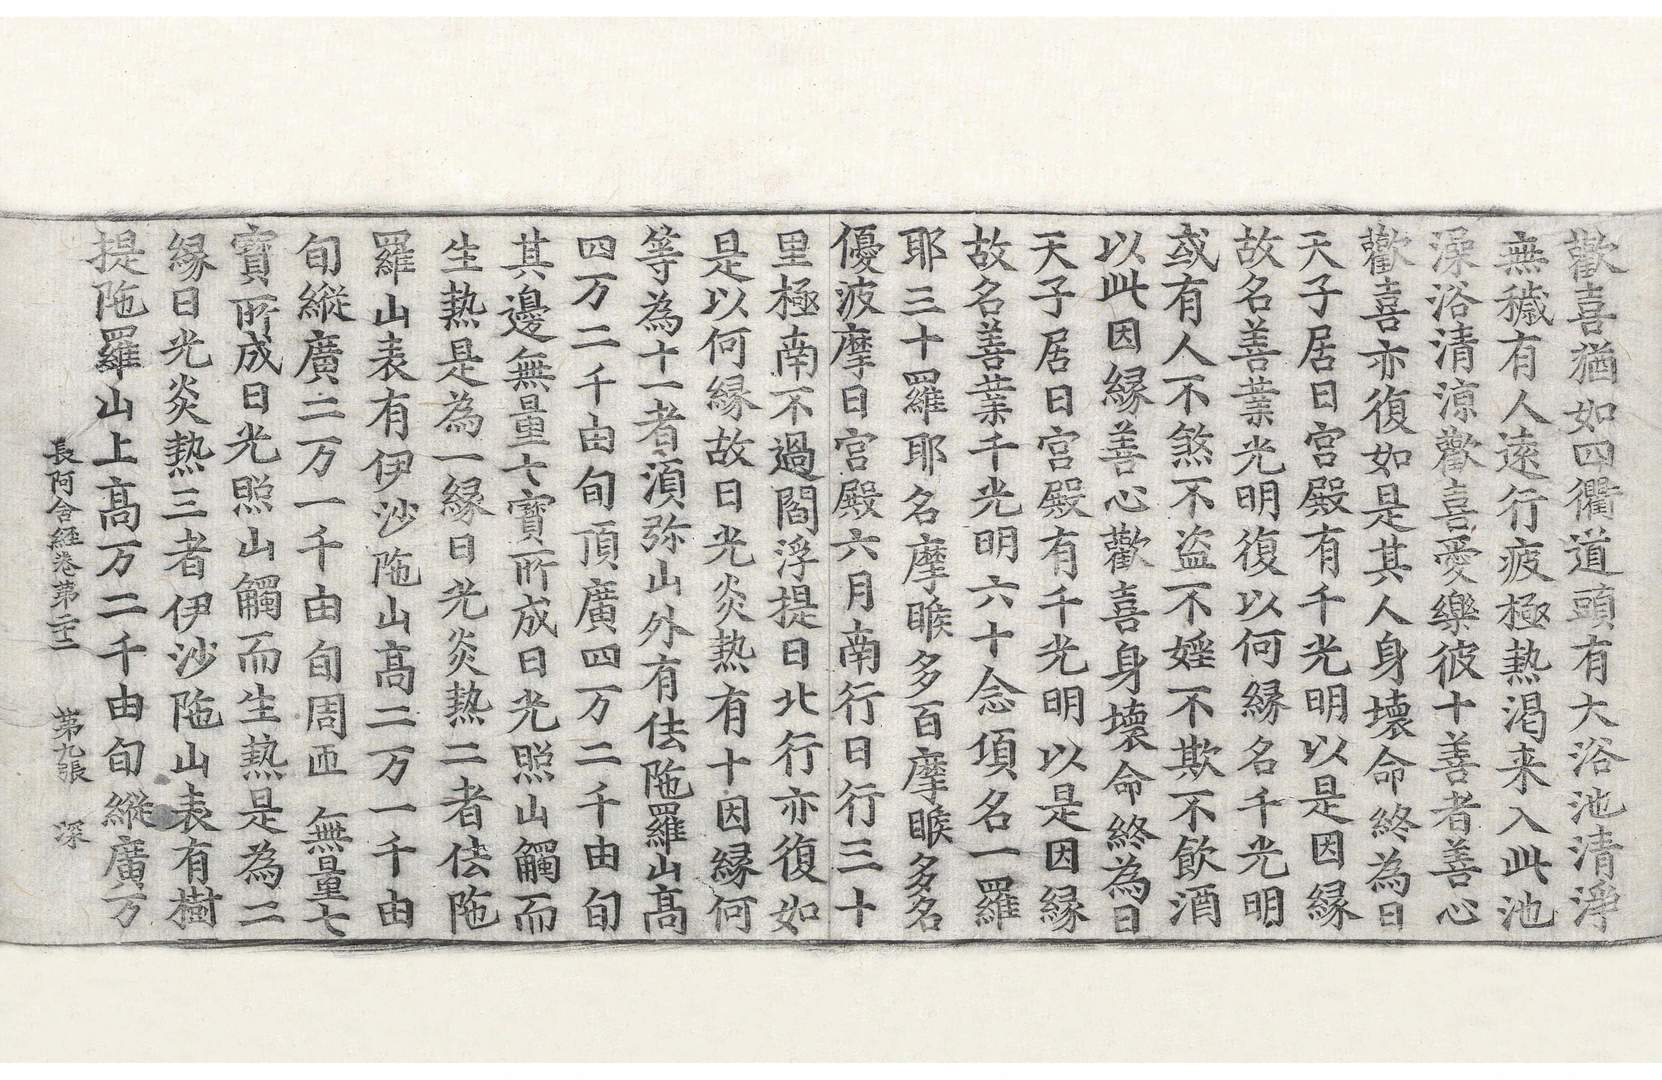 歡喜猶如四衢道頭有大浴池清淨
無穢有人遠行疲極熱渴来入此池
澡浴清涼歡喜愛樂彼十善者善心
歡喜亦復如是其人身壞命終為日
天子居日宮殿有千光明以是因縁
故名善業光明復以何縁名千光明
或有人不煞不盗不婬不欺不飲酒
以此因縁善心歡喜身壞命終為日
天子居日宮殿有千光明以是因縁
故名善業千光明六十念頃名一羅
耶三十羅耶名摩睺多百摩睺多名
優波摩日宮殿六月南行日行三十
里極南不過閻浮提日北行亦復如
是以何縁故日光炎熱有十因縁何
等為十一者湏弥山外有佉陁羅山高
四万二千由旬頂廣四万二千由旬
其邊無量七寶所成日光照山觸而
生熱是為一縁日光炎熱二者佉陁
羅山表有伊沙陁山高二万一千由
旬縱廣二万一千由旬周迊無量七
寶所成日光照山觸而生熱是為二
縁日光炎熱三者伊沙陁山表有樹
提陁羅山上高万二千由旬縱廣万
長阿含経卷第二十二 第九張 深